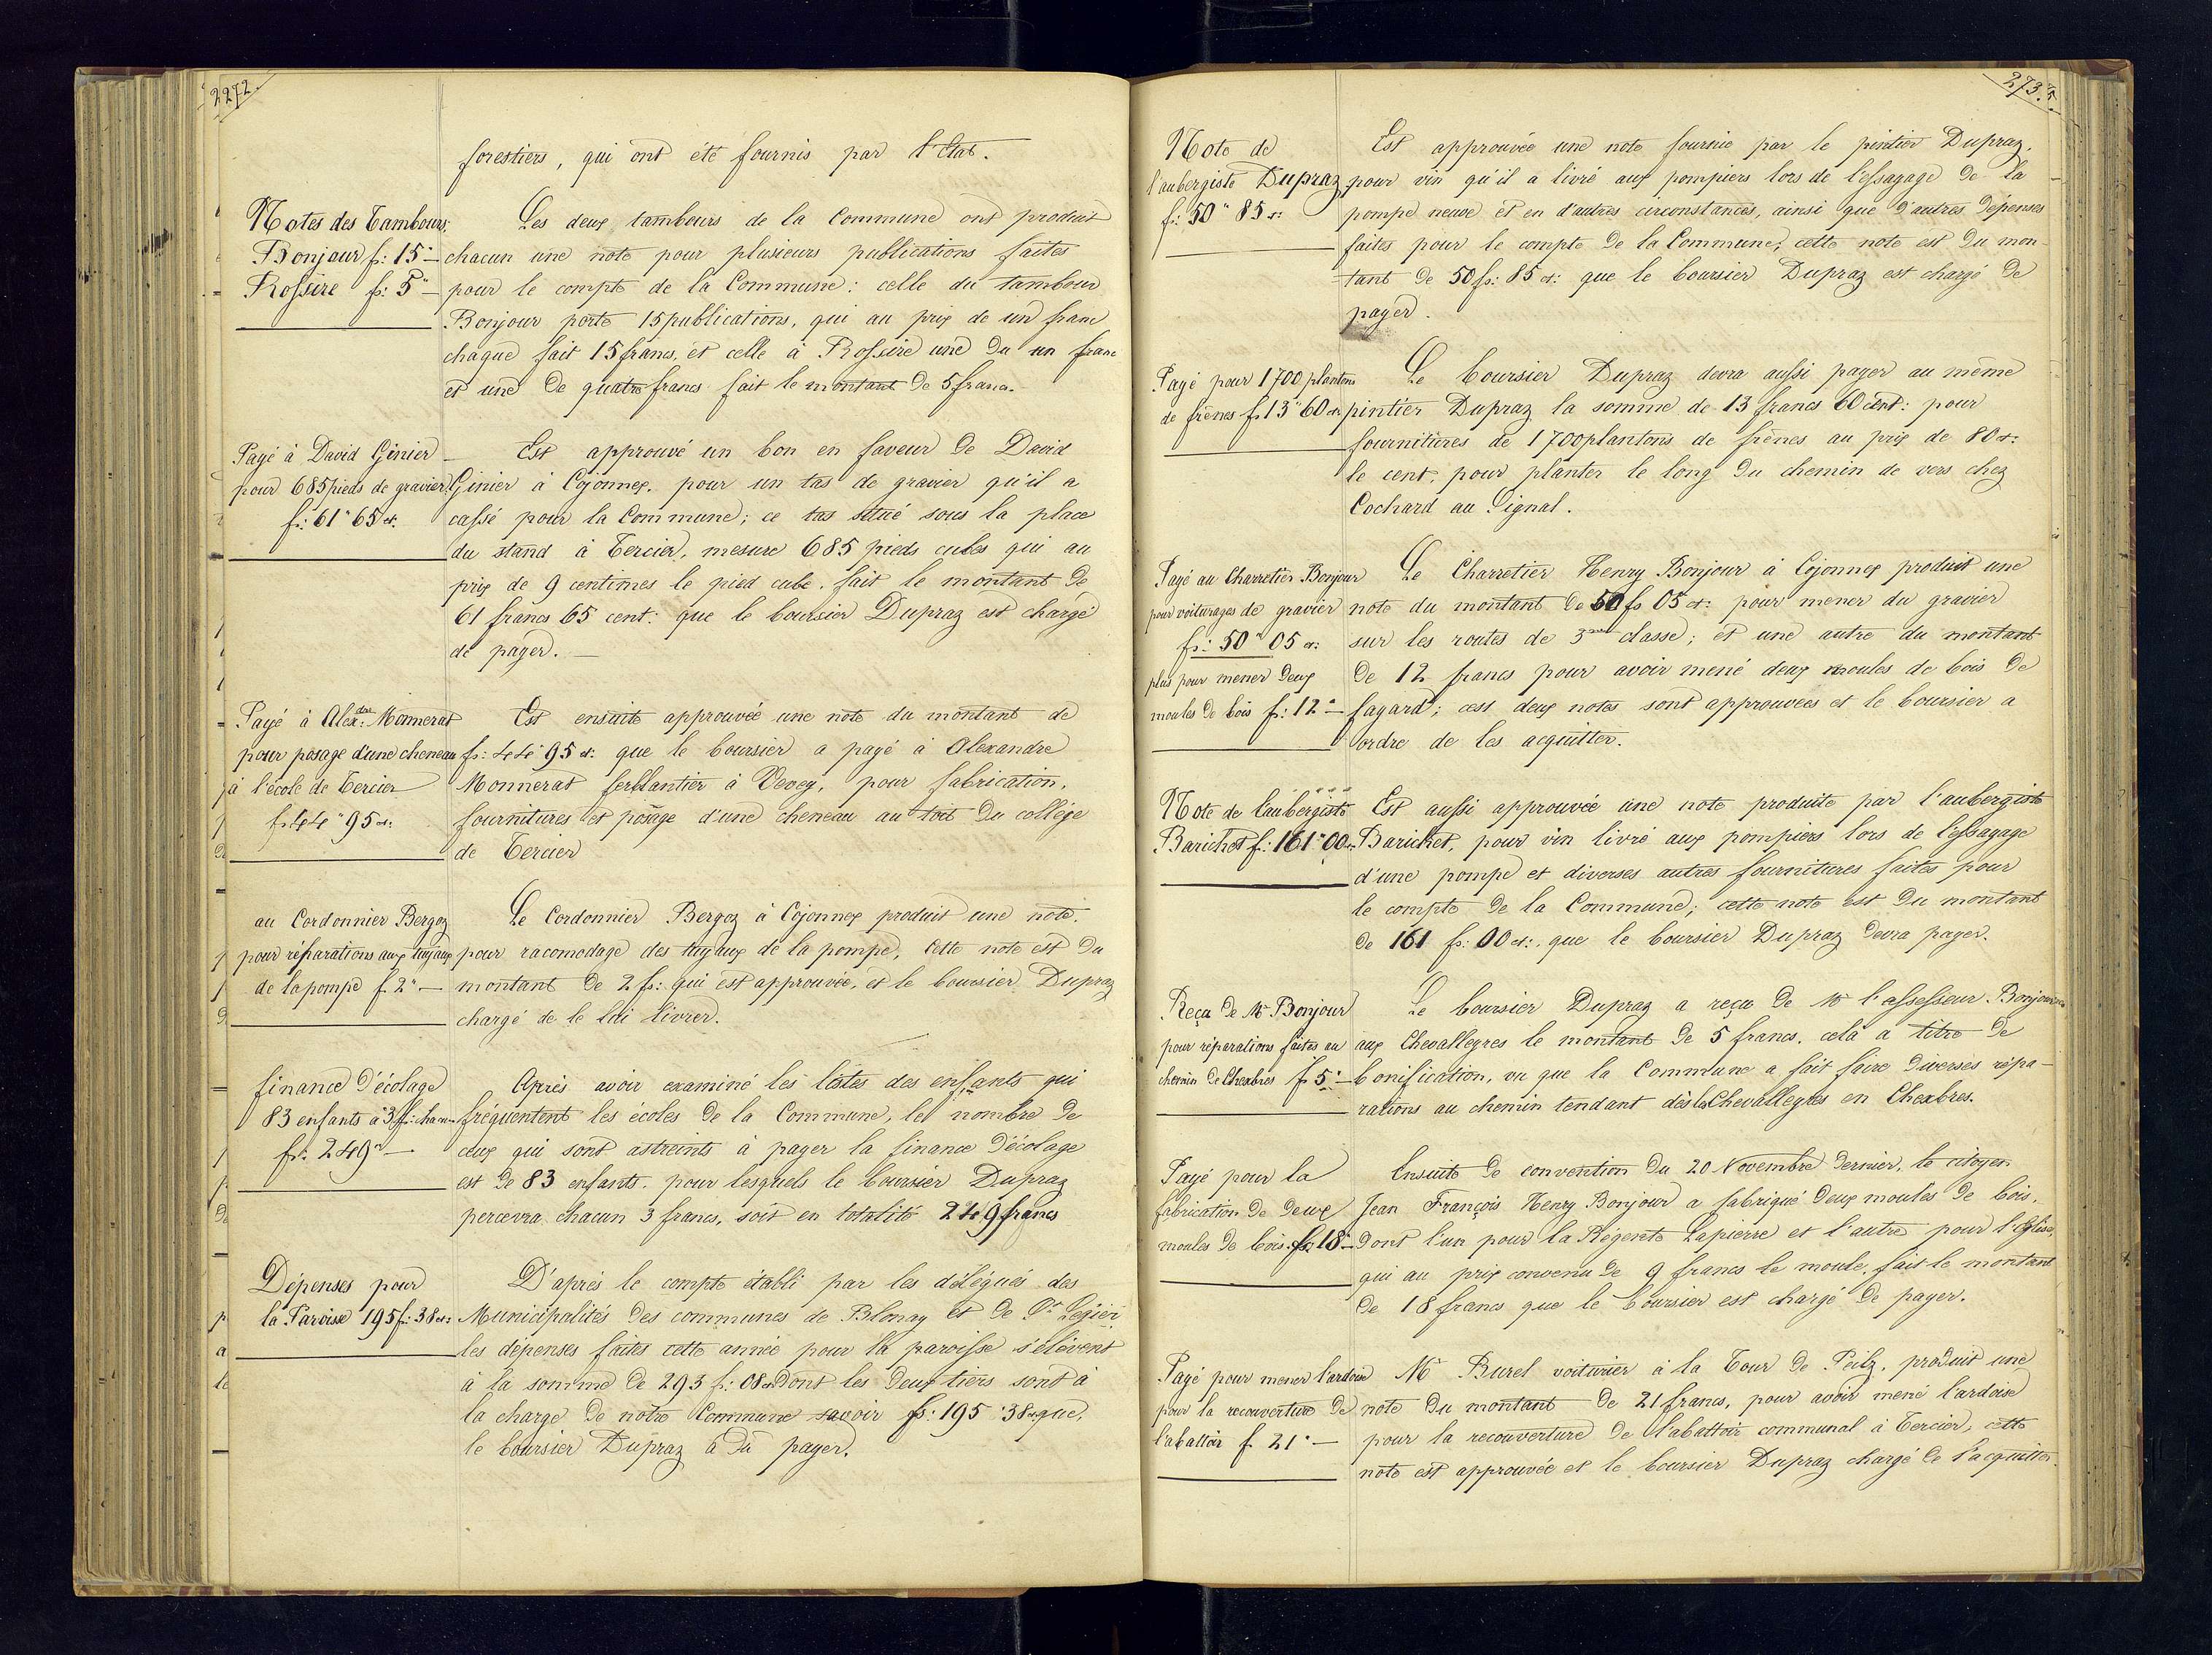 272.
forestiers, qui ont été fournis par l'Etat.
Notes des Tambours:
Bonjour fs: 15"—
Rossire fs: 5"—
Les deux tambours de la Commune ont produit
chacun une note pour plusieurs publications faites
pour le compte de la Commune: celle du tambour
Bonjour porte 15 publications, qui au prix de un franc
chaque fait 15 francs, et celle à Rossire une du un franc
et une de quatre francs fait le montant de 5 francs.
Payé à David Ginier
pour 685 pieds de gravier
fs: 61" 65 ct.
Est approuvé un bon en faveur de David
Ginier à Cojonnex, pour un tas de gravier qu'il a
cassé pour la Commune; ce tas situé sous la place
du stand à Tercier, mesure 685 pieds cubes qui au
prix de 9 centimes le pied cube, fait le montant de
61 francs 65 cent: que le boursier Dupraz est chargé
de payer. —
Payé à Alex:dre Monnerat
pour posage d'une cheneau
à l'école de Tercier
fs 44" 95 ct:
Est ensuite approuvée une note du montant de
fs: 44" 95 ct: que le boursier a payé à Alexandre
Monnerat ferblantier à Vevey, pour fabrication,
fournitures et posage d'une cheneau au toit du collége
de Tercier
au Cordonnier Bergoz
pour réparations aux tuyaux
de la pompe f. 2"—
Le Cordonnier Bergoz à Cojonnex produit une note,
pour racomodage des tuyaux de la pompe, cette note est du
montant de 2 fs: qui est approuvée, et le boursier Dupraz
chargé de le lui livrer.
finance d'écolage
83 enfants à 3 fr: chacun
fs: 249"—
Après avoir examiné les listes des enfants qui
fréquentent les écoles de la Commune, le nombre de
ceux qui sont astreints à payer la finance d'écolage
est de 83 enfants, pour lesquels le boursier Dupraz
percevra chacun 3 francs, soit en totalité 249 francs
Dépenses pour
la Paroisse 195 f: 38 ct:
D'après le compte établi par les délégués des
Municipalités des communes de Blonay et de St Légier
les dépenses faites cette année pour la paroisse s'élèvent
à la somme de 293 f: 08 ct dont les deux tiers sont à
la charge de notre Commune savoir fs: 195 "38 ct que,
le boursier Dupraz a dû payer.
273.
Note de
l'aubergiste Dupraz
fs: 50" 85 ct:
Est approuvée une note fournie par le pintier Dupraz,
pour vin qu'il a livré aux pompiers lors de l'essayage de la
pompe neuve et en d'autres circonstances, ainsi que d'autres dépenses
faites pour le compte de la Commune; cette note est du mon-
tant de 50 fs: 85 ct: que le boursier Dupraz est chargé de
payer.
Payé pour 1700 plantons
de frênes f. 13" 60 ct
Le boursier Dupraz devra aussi payer au même
pintier Dupraz la somme de 13 francs 60 cent: pour
fournitures de 1700 plantons de frênes au prix de 80 ct:
le cent, pour planter le long du chemin de vers chez
Cochard au Signal.
Payé au Charretier Bonjour
pour voiturages de gravier
fs: 50" 05 ct:
plus pour mener deux
moules de bois fs: 12"—
Le Charretier Henry Bonjour à Cojonnex produit une
note du montant de 50 fs 05 ct: pour mener du gravier
sur les routes de 3me classe; et une autre du montant
de 12 francs pour avoir mené deux moules de bois de
fayard; cest deux notes sont approuvées et le boursier a
ordre de les acquitter.
Note de l'aubergiste
Barichet f: 161" 00 ct:
Est aussi approuvée une note produite par l'aubergiste
Barichet, pour vin livré aux pompiers lors de l'essayage
d'une pompe et diverses autres fournitures faites pour
le compte de la Commune; cette note est du montant
de 161 fs: 00 ct:, que le boursier Dupraz devra payer.
Reçu de Mr Bonjour
pour réparations faites au
chemin de Chexbres fs 5"—
Le boursier Dupraz a reçu de Mr l'assesseur Bonjour
aux Chevalleyres le montant de 5 francs, cela à titre de
bonification, vu que la Commune a fait faire diverses répa-
rations au chemin tendant dès les Chevalleyres en Chexbres.
Payé pour la
fabrication de deux
moules de bois. fs: 18"—
Ensuite de convention du 20 Novembre dernier, le citoyen
Jean François Henry Bonjour a fabriqué deux moules de bois,
dont l'un pour la Régente Lapierre et l'autre pour l'Eglise,
qui au prix convenu de 9 francs le moule, fait le montant
de 18 francs que le boursier est chargé de payer.
Payé pour mener l'ardoise
pour la recouverture de
l'abattoir f. 21"—
Mr Burel voiturier à la Tour de Peilz, produit une
note du montant de 21 francs, pour avoir mené l'ardoise
pour la recouverture de l'abattoir communal à Tercier, cette
note est approuvée et le boursier Dupraz chargé de l'acquitter.